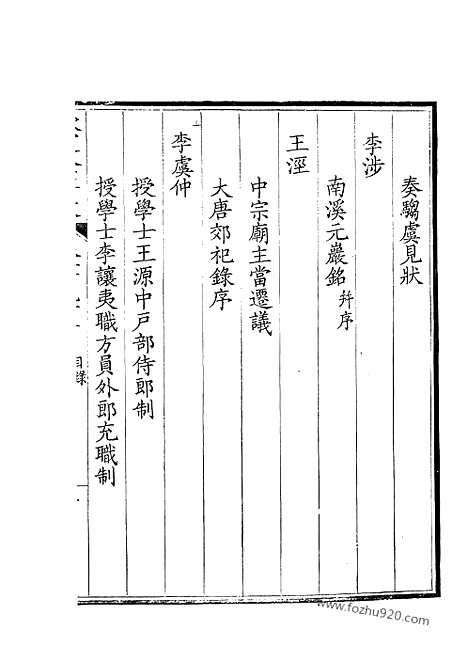 奏騶虞見狀
李涉
南溪元巖銘 并序
王涇
中宗廟主當遷議
大唐郊祀錄序
李虞仲
授學士王源中戶部侍郎制
授學士李讓夷職方員外郎充職制
目錄
www.fozhu920.com